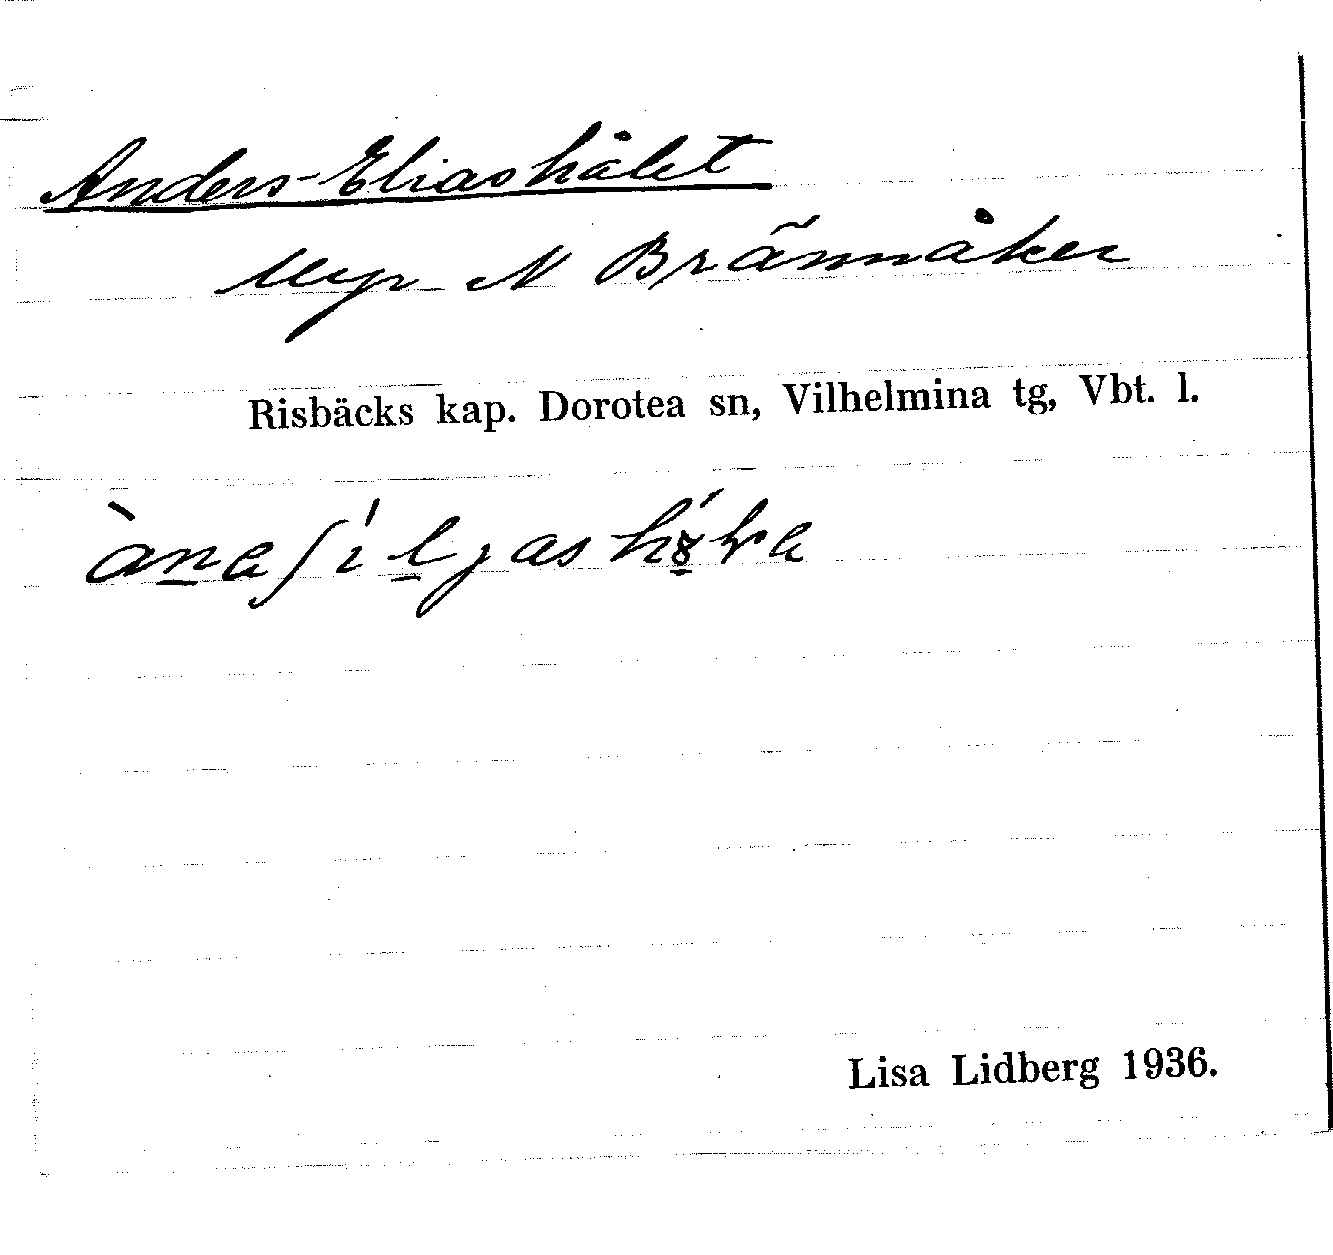 Anders-Eliashålet
Myr N Brännåker
Risbäcks kap. Dorotea sn, Vilhelmina tg, Vbt. l.
Lisa Lidberg 1936.